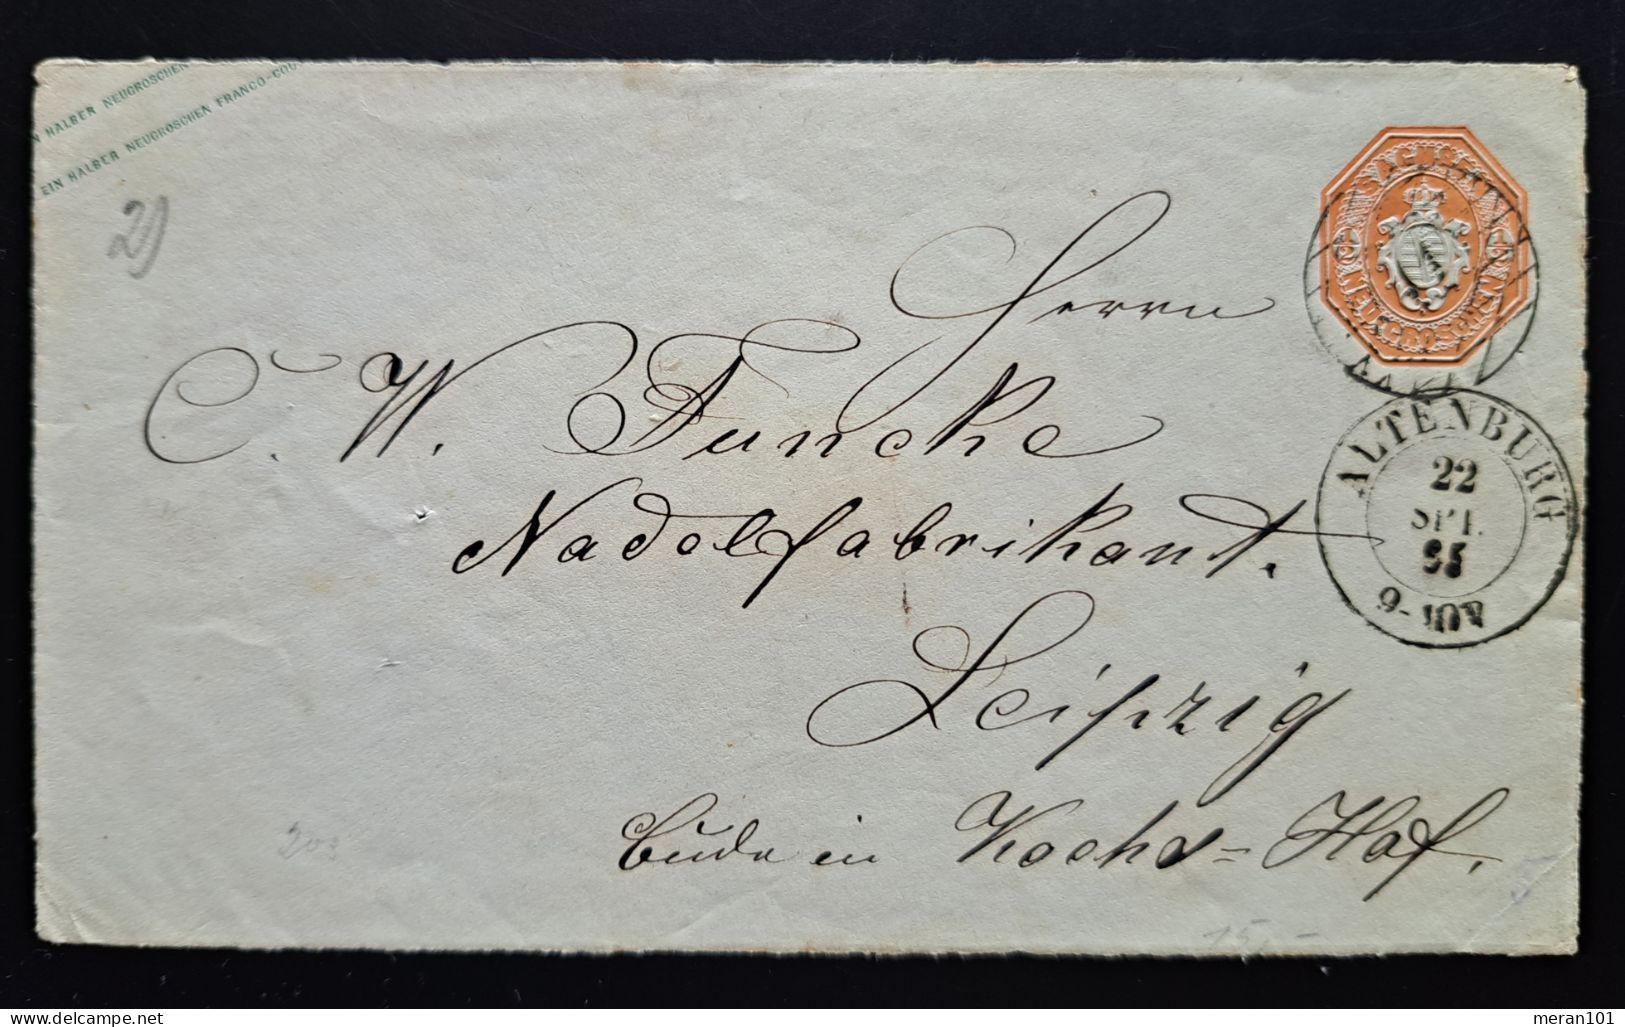 N HALBER NEUGROSCHEN
EIN HALBER NEUGROSCHEN FRANCO-COU
2)
SACHSEN
½ ½
NEUGROSCHEN
Herrn
C. W. Funcke
Nadelfabrikant.
Leipzig
Bude in Kochs=Hof.
ALTENBURG
22
SPT.
65
9-10V
15,-
meran101